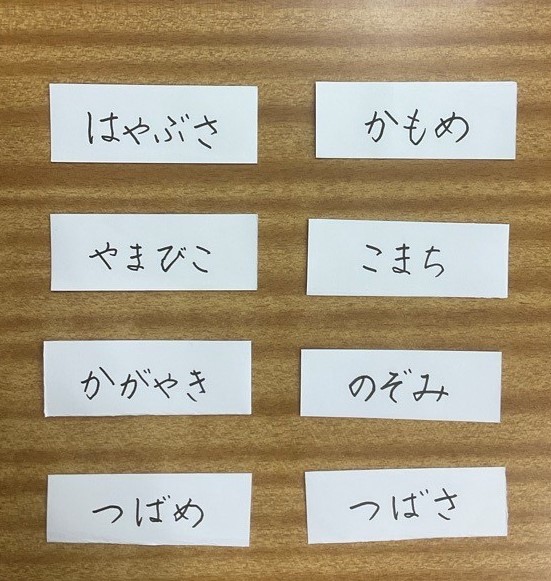 はやぶさ
かもめ
やまびこ
こまち
かがやき
のぞみ
つばめ
つばさ